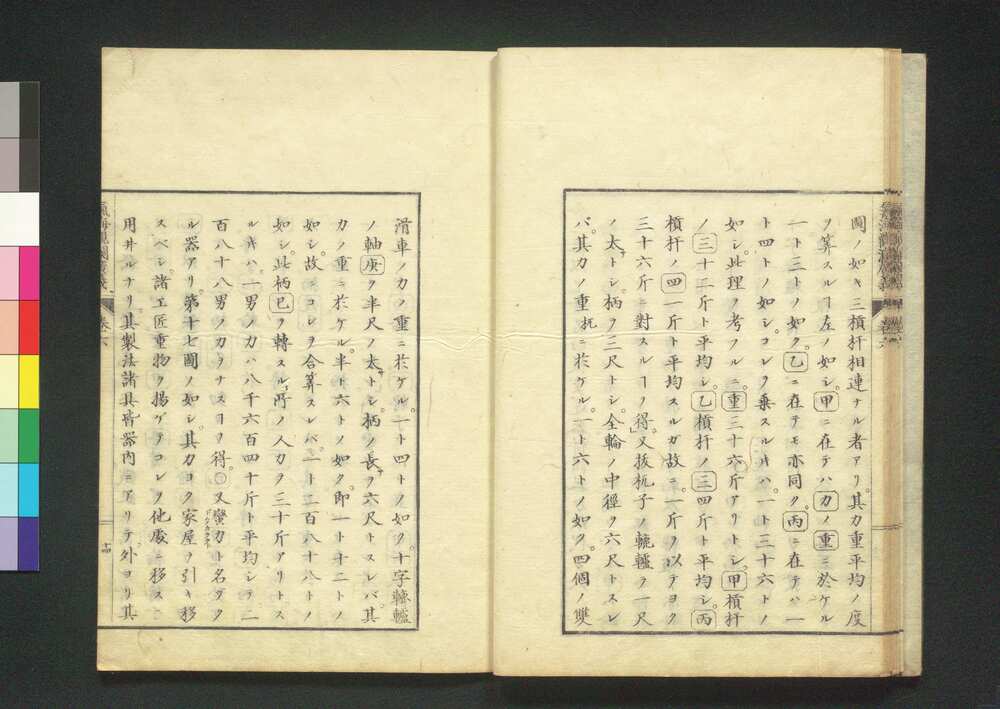 圖ノ如キ三槓扞相連ナル者アリ其力重平均ノ度
ヲ算スルヿ左ノ如シ甲ニ在テハ力ノ重ニ於ケル
一ト三トノ如ク乙ニ在テモ亦同ク丙ニ在テハ一
ト四トノ如シコレヲ乗スルキハ一ト三十六トノ
如シ此理ヲ考フルニ重三十六斤アリトシ甲槓扞
ノ三十二斤ト平均シ乙槓扞ノ三四斤ト平均シ丙
槓扞ノ四一斤ト平均スルガ故ニ一斤ヲ以テヨク
三十六斤ニ對スルヿヲ得又拔杭子ノ轆轤ヲ一尺
ノ太トシ柄ヲ三尺トシ全輪ノ中徑ヲ六尺トスレ
バ其力ノ重扤ニ於ケル一ト六トノ如ク四個ノ雙
滑車ノ力ノ重ニ於ケル一ト四トノ如ク十字轆轤
ノ軸庚ヲ半尺ノ太トシ柄ノ長ヲ六尺トスレバ其
力ノ重ニ於ケル半ト六トノ如ク即一ト十二トノ
如シ故ニコレヲ合算スレバ一ト二百八十八トノ
如シ此柄巳ヲ轉スル所ノ人力ヲ三十斤アリトス
ルキハ一男ノ力ハ八千六百四十斤ト平均シテ二
百八十八男ノ力ヲナスヿヲ得○又蠻力ト名ヅク
ル器アリ第十七圖ノ如シ其力ヨク家屋ヲ引キ移
スベシ諸工匠重物ヲ揚ゲテコレヲ他處ニ移スニ
用井ルナリ其製法諸具皆器内ニアリテ外ヨリ其
卷六
十四